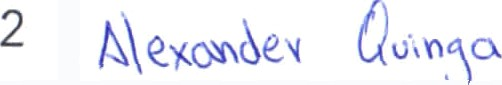 2 Alexander Quinga